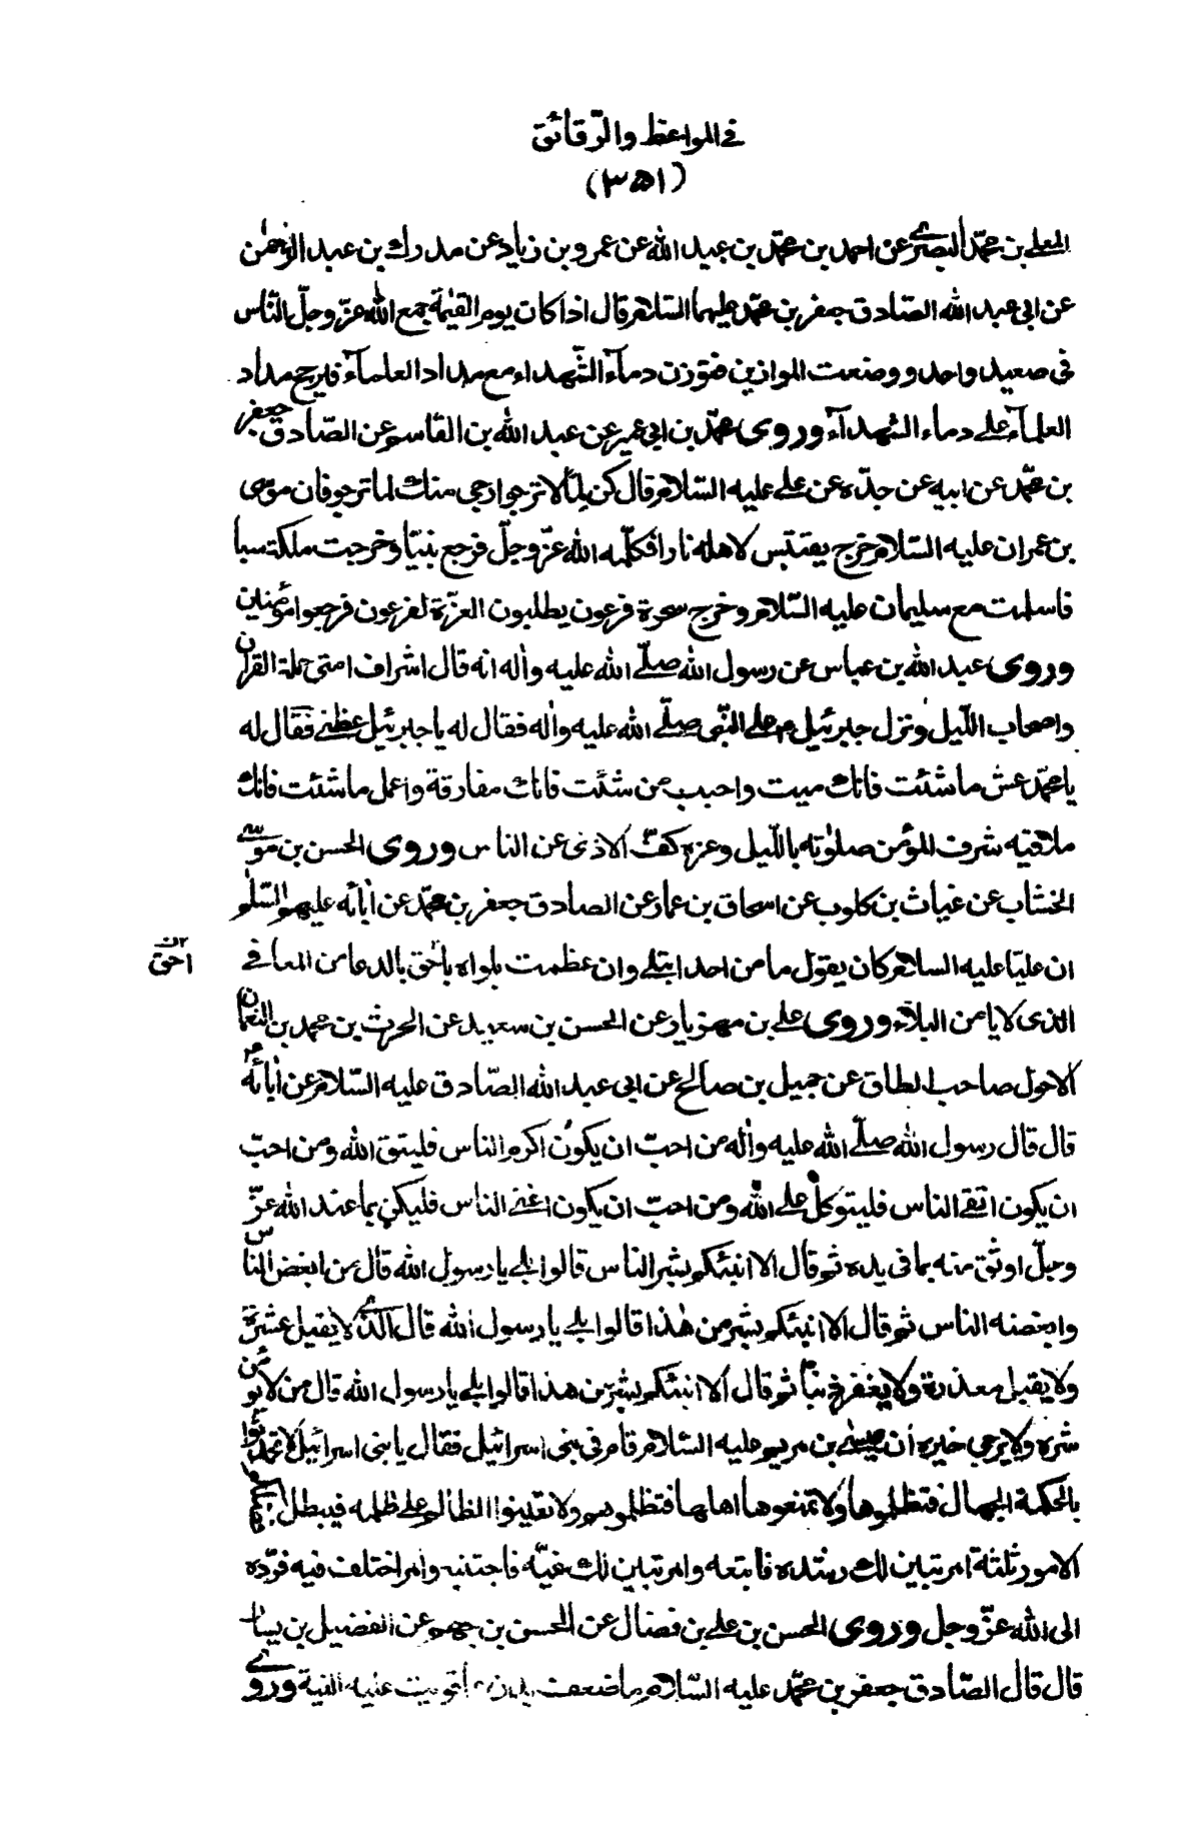 في المواعظ والرّقائق
(٣٥١)
المعلى بن محمّد البصري عن احمد بن محمّد بن عبيد الله عن عمرو بن زياد عن مدرك بن عبد الرّحمٰن
عن ابى عبد الله الصّادق جعفر بن محمّد عليهما السّلام قال اذا كان يوم القيٰمة جمع الله عزّ وجلّ النّاس
فى صعيد واحد ووضعت الموازين فتوزن دماء الشّهداء مع مداد العلماء فيرجح مداد
العلماء على دماء الشهداء وروى محمّد بن ابى عمير عن عبد الله بن القاسم عن الصّادق جعفر
بن محمّد عن ابيه عن جدّه عن على عليه السّلام قال كن لما لا ترجوا ارجى منك لما ترجو فان موسى
بن عمران عليه السّلام خرج يقتبس لاهله نارا فكلّمه الله عزّ وجلّ فرجع نبيّا وخرجت ملكة سبا
فاسلمت مع سليمان عليه السّلام وخرج سحرة فرعون يطلبون العزّة لفرعون فرجعوا مؤمنين
وروى عبد الله بن عباس عن رسول الله صلّى الله عليه واٰله انه قال اشراف امتى حملة القراٰن
واصحاب اللّيل ونزل جبرئيل ع على النّبى صلّى الله عليه واٰله فقال له يا جبرئيل عظنى فقال له
يا محمّد عش ما شئت فانك ميت واحبب من شئت فانك مفارقة واعمل ما شئت فانك
ملاقيه شرف المؤمن صلوٰته باللّيل وعزه كفّ الاذى عن الناس وروى الحسن بن موسى
الخشاب عن غياث بن كلوب عن اسحاق بن عمار عن الصادق جعفر بن محمّد عن اٰبائه عليهم السّلم
ان عليّا عليه السلام كان يقول ما من احد ابتلى وان عظمت بلواه باحق بالدعا من المعافى
احقّ
الذى لا يامن البلاء وروى على بن مهزيار عن الحسن بن سعيد عن الحرث بن محمد بن النعمان
الاحول صاحب الطاق عن جميل بن صالح عن ابى عبد الله الصّادق عليه السّلام عن اٰبائه
قال قال رسول الله صلّى الله عليه واٰله من احبّ ان يكون اكرم الناس فليتق الله ومن احبّ
ان يكون اتقى الناس فليتوكل على الله ومن احبّ ان يكون اغنى الناس فليكن بما عند الله عزّ
وجلّ اوثق منه بما فى يده ثم قال الا انبئكم بشر الناس قالوا بلى يا رسول الله قال من ابغض النّاس
وابغضه الناس ثم قال الا انبئكم بشر من هٰذا قالوا بلى يا رسول الله قال الّذى لا يقيل عثرة
ولا يقبل معذرة ولا يغفر ذنبا ثم قال الا انبئكم بشر من هذا قالوا بلى يا رسول الله قال من لا يؤمن
شره ولا يرجى خيره ان عيسى بن مريم عليه السّلام قام فى بنى اسرائيل فقال يا بنى اسرائيل لا تحدثوا
بالحكمة الجهال فتظلموها ولا تمنعوها اهلها فتظلموهم ولا تعينوا الظالم على ظلمه فيبطل فضلكم
الامور ثلثة امر تبين لك رشده فاتبعه وامر تبين لك غيّه فاجتنبه وامر اختلف فيه فردّه
الى الله عزّ وجل وروى الحسن بن على بن فضال عن الحسن بن جهم عن الفضيل بن يسار
قال قال الصّادق جعفر بن محمّد عليه السّلام ما ضعف بدن عما قويت عليه النية وروى